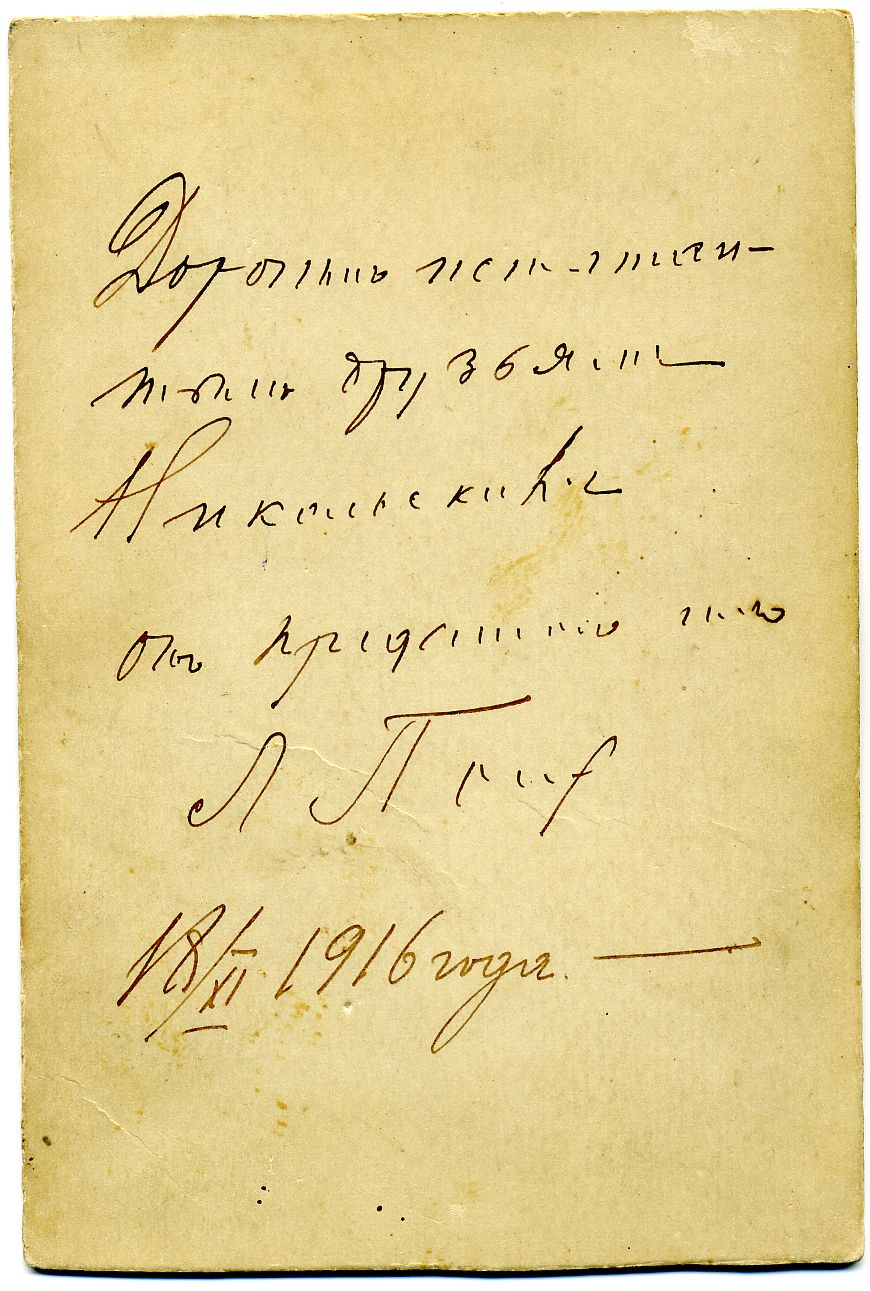 Дорогимъ искрен-
нимъ друзьям
Никольскимъ
отъ преданнаго
Л П
18/XI 1916 года. —